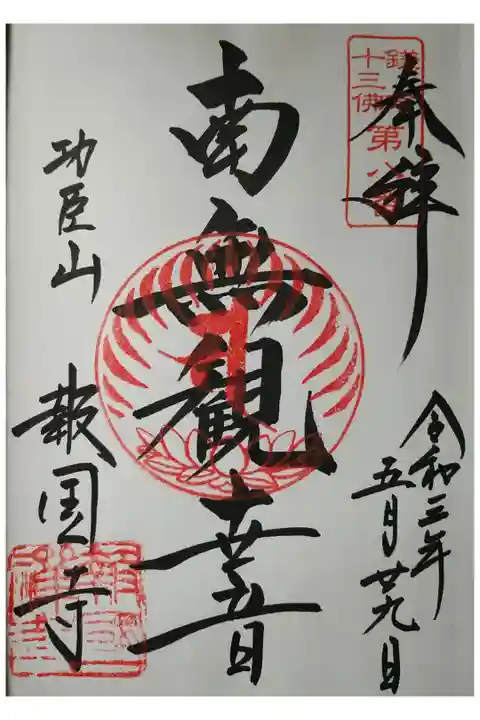 奉拝
鎌倉
十三佛
第八番
令和三年
五月廿九日
南無観世音
功臣山
報国寺